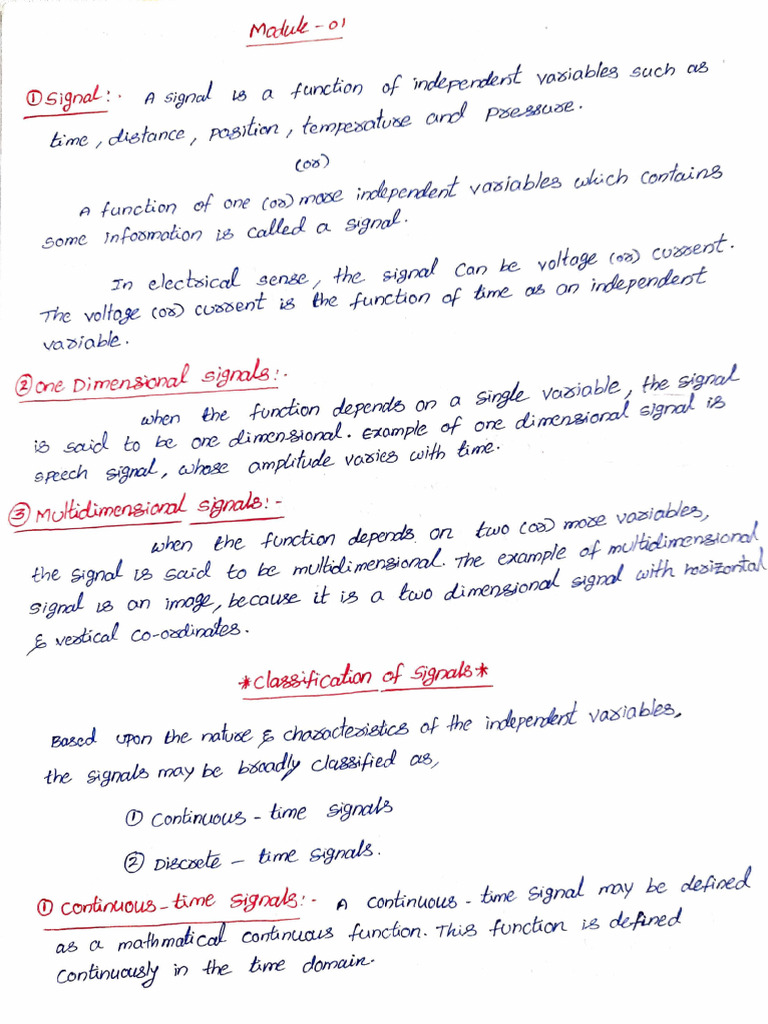 Module-01
① Signal:- A signal is a function of independent variables such as
time, distance, position, temperature and pressure.
(or)
A function of one (or) more independent variables which contains
some information is called a signal.
In electrical sense, the signal can be voltage (or) current.
The voltage (or) current is the function of time as an independent
variable.
② One Dimensional signals:-
when the function depends on a single variable, the signal
is said to be one dimensional. Example of one dimensional signal is
speech signal, whose amplitude varies with time.
③ Multidimensional signals:-
when the function depends on two (or) more variables,
the signal is said to be multidimensional. The example of multidimensional
signal is an image, because it is a two dimensional signal with horizontal
& vertical co-ordinates.
*Classification of Signals*
Based upon the nature & characteristics of the independent variables,
the signals may be broadly classified as,
① Continuous - time signals
② Discrete - time signals.
① Continuous-time signals:- A continuous-time signal may be defined
as a mathmatical continuous function. This function is defined
continuously in the time domain.